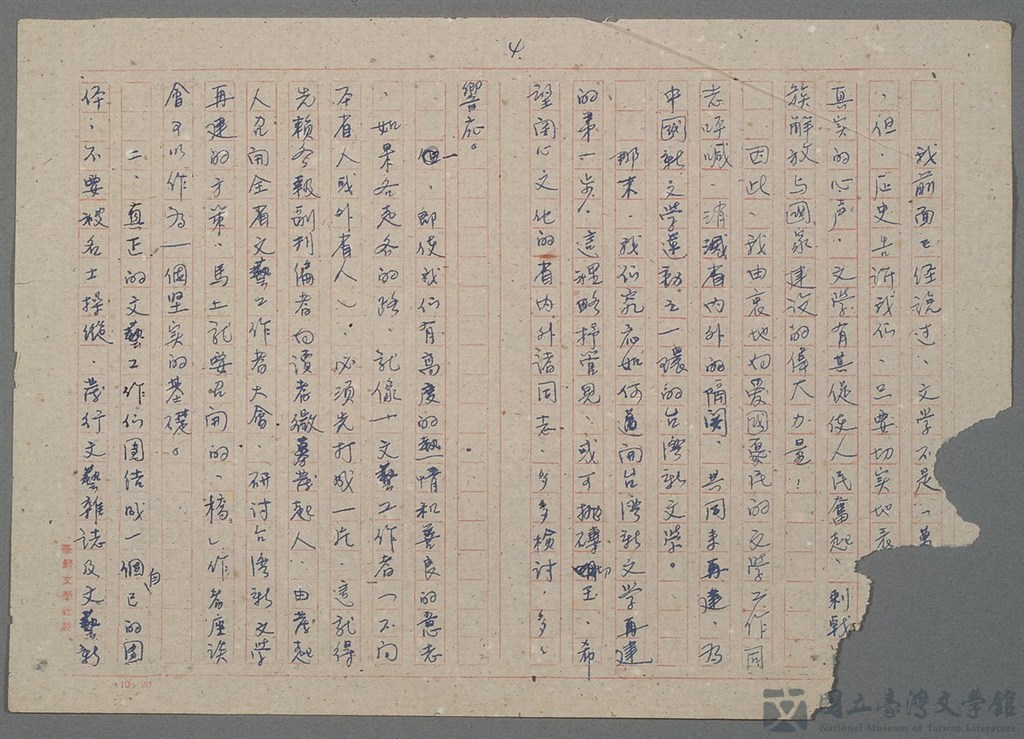 4
我前面已经説过、文学不是「萬
、但、历史告訴我们、只要切实地表
真实的心声、文学有其促使人民奮起、刺戟
族解放与國家建设的偉大力量！
因此、我由衷地向爱國憂民的文学工作同
志呼喊、消滅省内外的隔閡、共同来再建、为
中國新文学運動之一環的台湾新文学。
那末、我们究应如何 開台湾新文学再建
的第一步、這裡略抒管見、或可抛磚 玉、希
望関心文化的省内外諸同志、多多檢討、多々
響应。
一、即使我们有高度的熱情和善良的意志
、如果各走各的路、就像 文藝工作者（不问
本省人或外省人）、必须先打成一片、這就得
先賴各報副刊编者向讀者徵募発起人、由発起
人召開全省文藝工作者大會、研讨台湾新文学
再建的方策、馬上就要召開的、「橋」作者座谈
會可以作为一個坚实的基礎。
二、真正的文藝工作们團结成一個自已的團
体；不要被名士操縱、発行文藝雜誌及文藝新
臺灣文學社
10×20
國立臺灣文学館
National Museum of Taiwan Literature